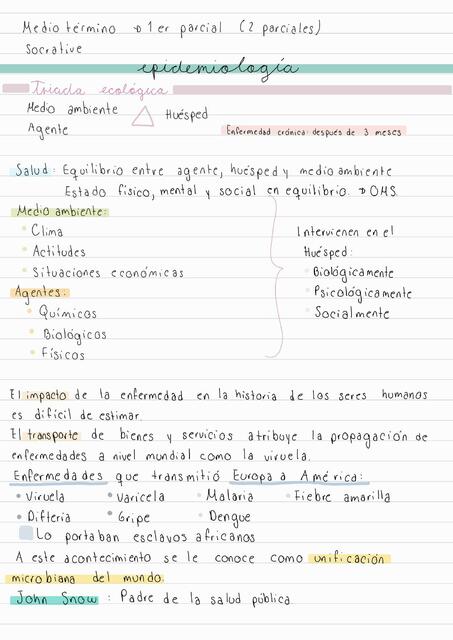 Medio término → 1er parcial (2 parciales)
Socrative
epidemiología
Triada ecológica
Medio ambiente
Huésped
Agente
Enfermedad crónica: después de 3 meses
Salud: Equilibrio entre agente, huésped y medio ambiente
Estado físico, mental y social en equilibrio. → OMS.
Medio ambiente:
• Clima
• Actitudes
• Situaciones económicas
Agentes:
• Químicos
• Biológicos
• Físicos
Intervienen en el
Huésped:
• Biológicamente
• Psicológicamente
• Socialmente
El impacto de la enfermedad en la historia de los seres humanos
es difícil de estimar.
El transporte de bienes y servicios atribuye la propagación de
enfermedades a nivel mundial como la viruela.
Enfermedades que transmitió Europa a América:
• Viruela • Varicela • Malaria • Fiebre amarilla
• Difteria • Gripe • Dengue
Lo portaban esclavos africanos
A este acontecimiento se le conoce como unificación
microbiana del mundo.
John Snow : Padre de la salud pública